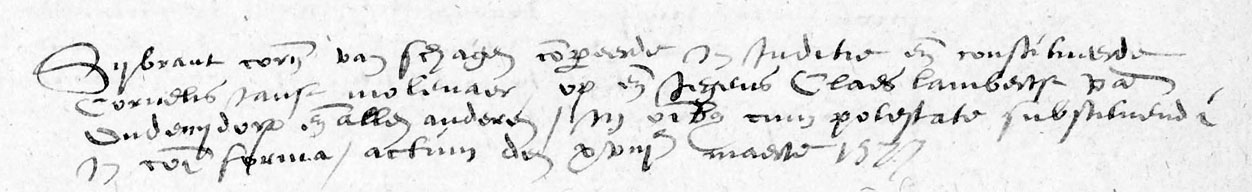 Sijbrant corn van schagen compeerde In Juditie en constitueerde
Cornelis Jansz molenaer op en Jegens Claes lambertsz van
Oudenijdorp en allen anderen / In oibus cum potestate substituendi
In coi forma / actum den xviij maerte 1577